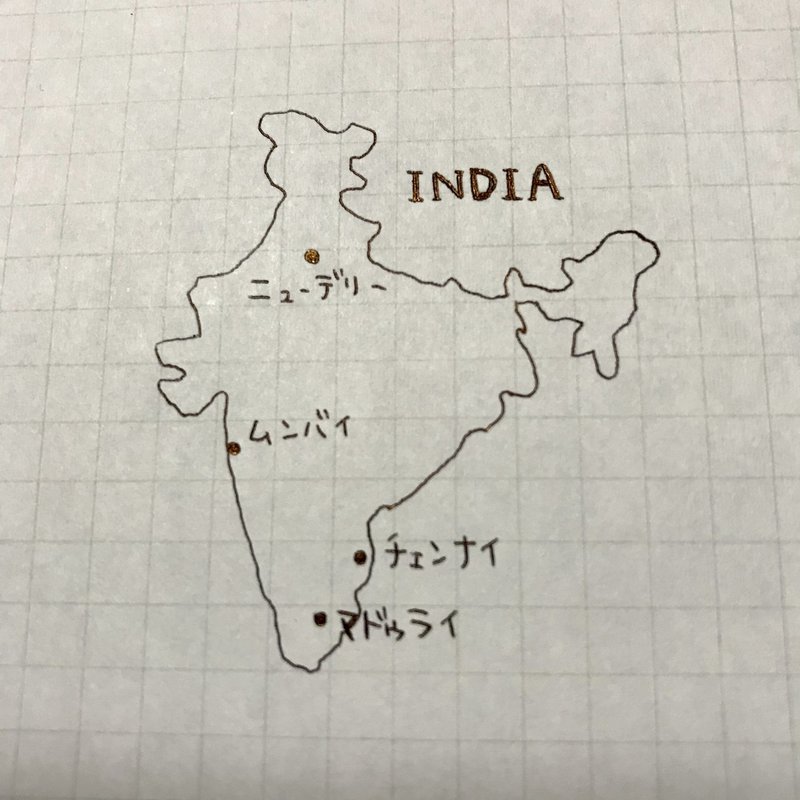 INDIA
ニューデリー
ムンバイ
チェンナイ
マドゥライ